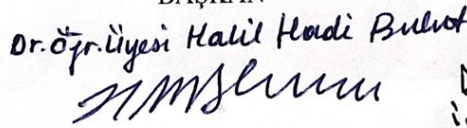 BAŞKAN
Dr. Öğr. Üyesi Halil Hadi Bulut